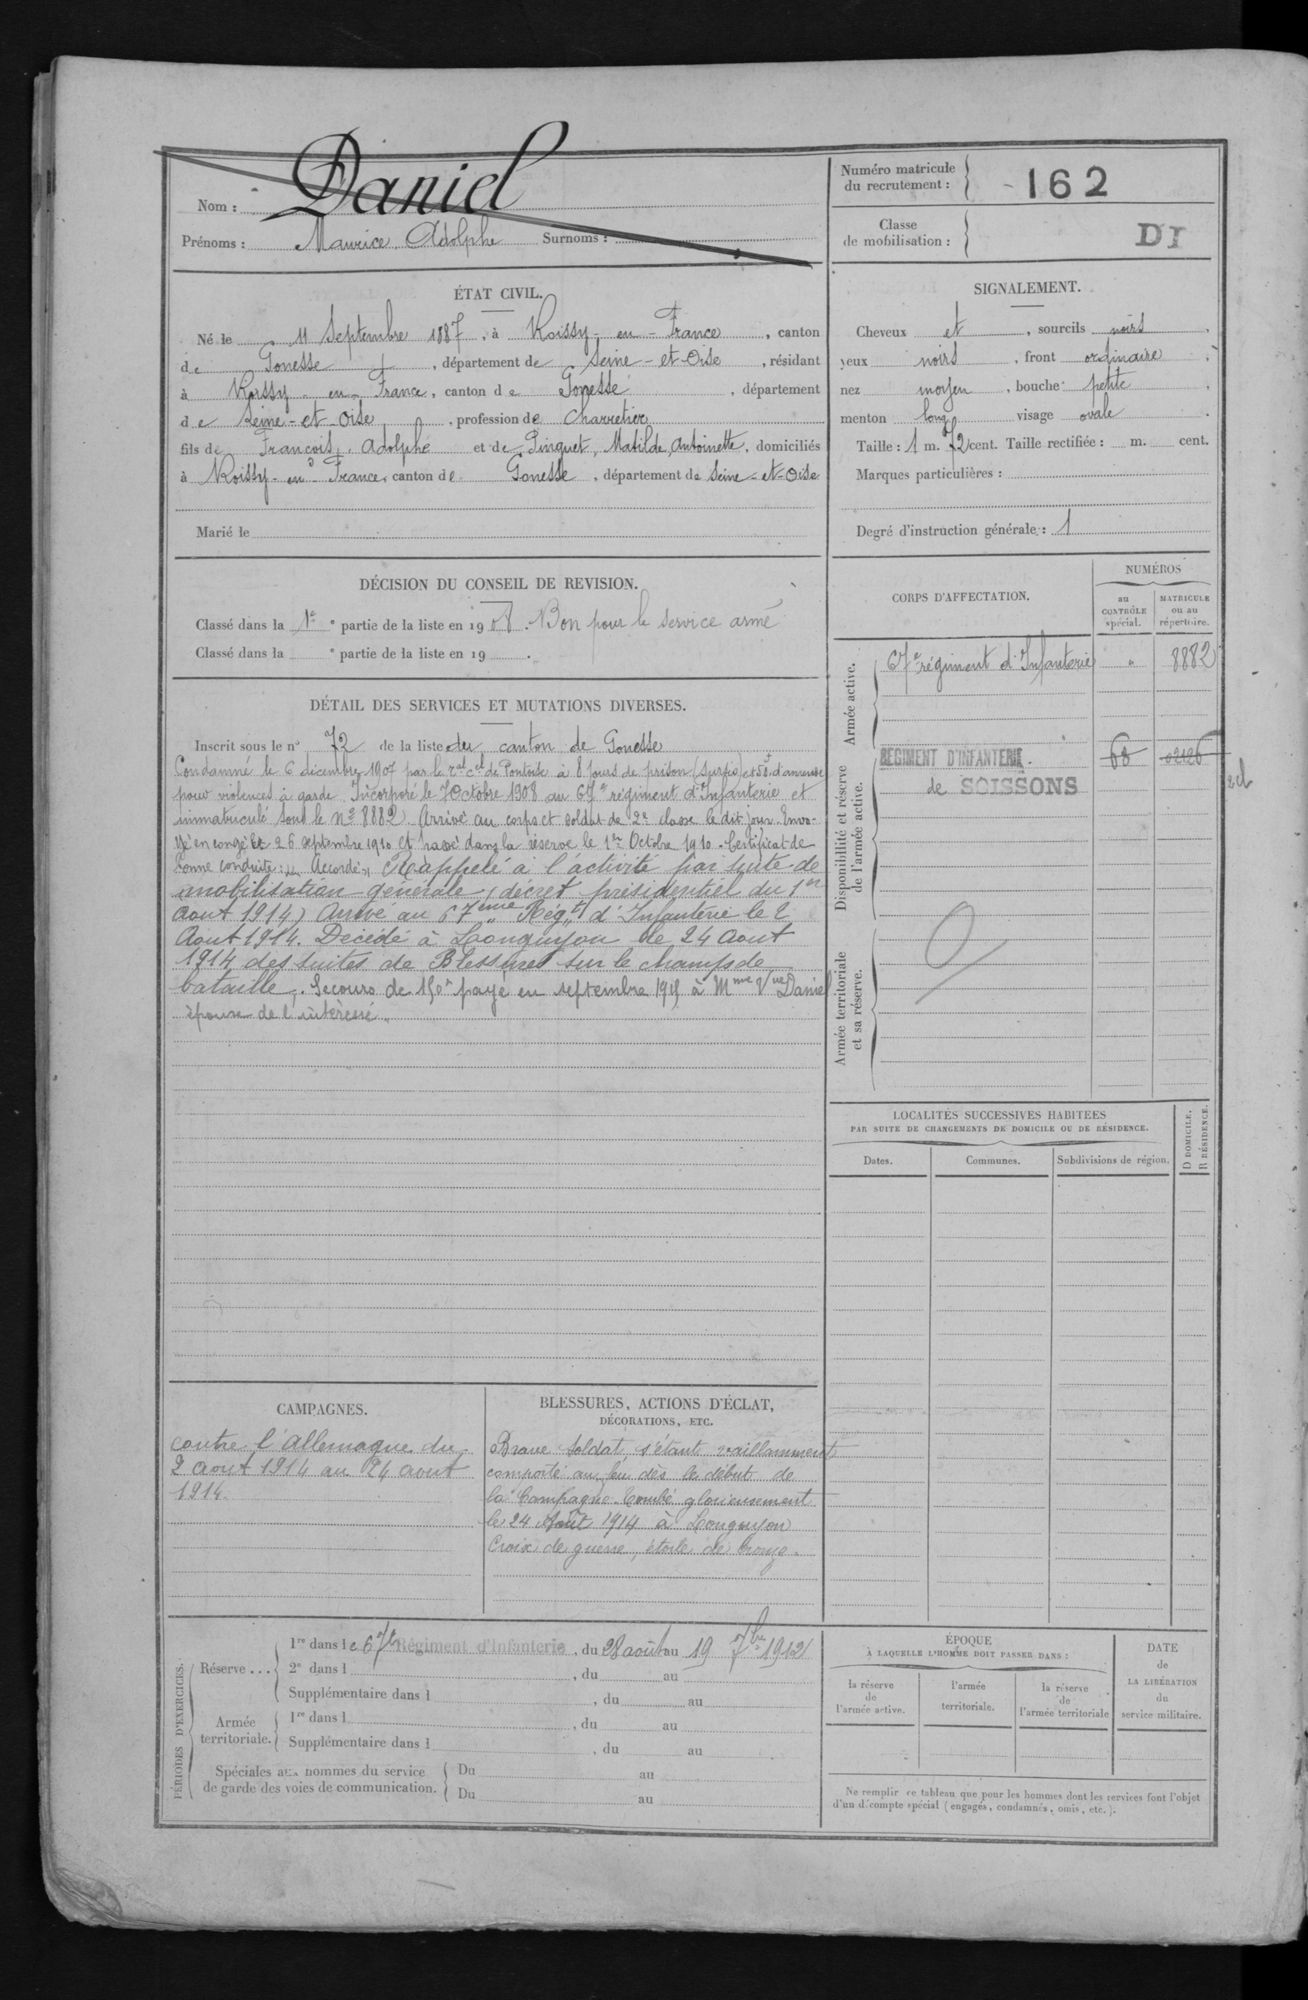 Nom : Daniel
Prénoms : Maurice Adolphe Surnoms :
Numéro matricule
du recrutement : 162
Classe
de mobilisation : DI
ÉTAT CIVIL.
Né le 11 Septembre 1887, à Roissy-en-France, canton
de Gonesse, département de Seine-et-Oise, résidant
à Roissy-en-France, canton de Gonesse, département
de Seine-et-Oise, profession de Charretier
fils de François, Adolphe et de Pinguet, Matilde, Antoinette, domiciliés
à Roissy-en-France, canton de Gonesse, département de Seine-et-Oise
Marié le
SIGNALEMENT.
Cheveux et, sourcils noirs,
yeux noirs, front ordinaire,
nez moyen, bouche petite,
menton long visage ovale.
Taille : 1 m. 72 cent. Taille rectifiée : m. cent.
Marques particulières :
Degré d'instruction générale : 1
DÉCISION DU CONSEIL DE REVISION.
Classé dans la 1e partie de la liste en 1908. Bon pour le service armé
Classé dans la e partie de la liste en 19 .
DÉTAIL DES SERVICES ET MUTATIONS DIVERSES.
Inscrit sous le n° 72 de la liste du canton de Gonesse
Condamné le 6 décembre 1907 par le de Pontoise à 8 jours de prison (sursis) et d'amende
pour violences à garde. Incorporé le 7 Octobre 1908 au 67e régiment d'Infanterie et
immatriculé sous le no 8882. Arrivé au corps et soldat de 2e classe le dit jour. Envo-
yé en congé le 26 septembre 1910 et passé dans la réserve le 1er Octobre 1910. Certificat de
bonne conduite : "Accordé" Rappelé à l'activité par suite de
mobilisation générale (décret présidentiel du 1er
aout 1914) Arrivé au 67eme Régt d'Infanterie le 2
Aout 1914. Décédé à Longuyon le 24 aout
1914 des suites de Blessures sur le champs de
bataille. Secours de 150f payé en septembre 1915 à Mme Vve Daniel
épouse de l'intéressé.
CORPS D'AFFECTATION.
NUMÉROS
au
CONTRÔLE
spécial.
MATRICULE
ou au
répertoire.
Armée active.
67e régiment d'Infanterie " 8882
Disponibilité et réserve
de l'armée active.
RÉGIMENT D'INFANTERIE. 68 02126
de SOISSONS
Armée territoriale
et sa réserve.
LOCALITÉS SUCCESSIVES HABITEES
PAR SUITE DE CHANGEMENTS DE DOMICILE OU DE RÉSIDENCE.
Dates. Communes. Subdivisions de région.
D DOMICILE.
R RÉSIDENCE.
CAMPAGNES.
contre l'Allemagne du
2 aout 1914 au 24 aout
1914.
BLESSURES, ACTIONS D'ÉCLAT,
DÉCORATIONS, ETC.
Brave soldat, s'étant vaillamment
comporté au feu dès le début de
la Campagne. Tombé glorieusement
le 24 Août 1914 à Longuyon
Croix de guerre, étoile de bronze.
PÉRIODES D'EXERCICES.
Réserve...
1re dans le 67e Régiment d'Infanterie, du 28 août au 19 7bre 1912
2e dans l , du au
Supplémentaire dans l , du au
Armée
territoriale.
1re dans l , du au
Supplémentaire dans l , du au
Spéciales aux hommes du service
de garde des voies de communication.
Du au
Du au
ÉPOQUE
À LAQUELLE L'HOMME DOIT PASSER DANS :
la réserve
de
l'armée active.
l'armée
territoriale.
la réserve
de
l'armée territoriale
DATE
de
LA LIBÉRATION
du
service militaire.
Ne remplir ce tableau que pour les hommes dont les services font l'objet
d'un décompte spécial (engagés, condamnés, omis, etc.).